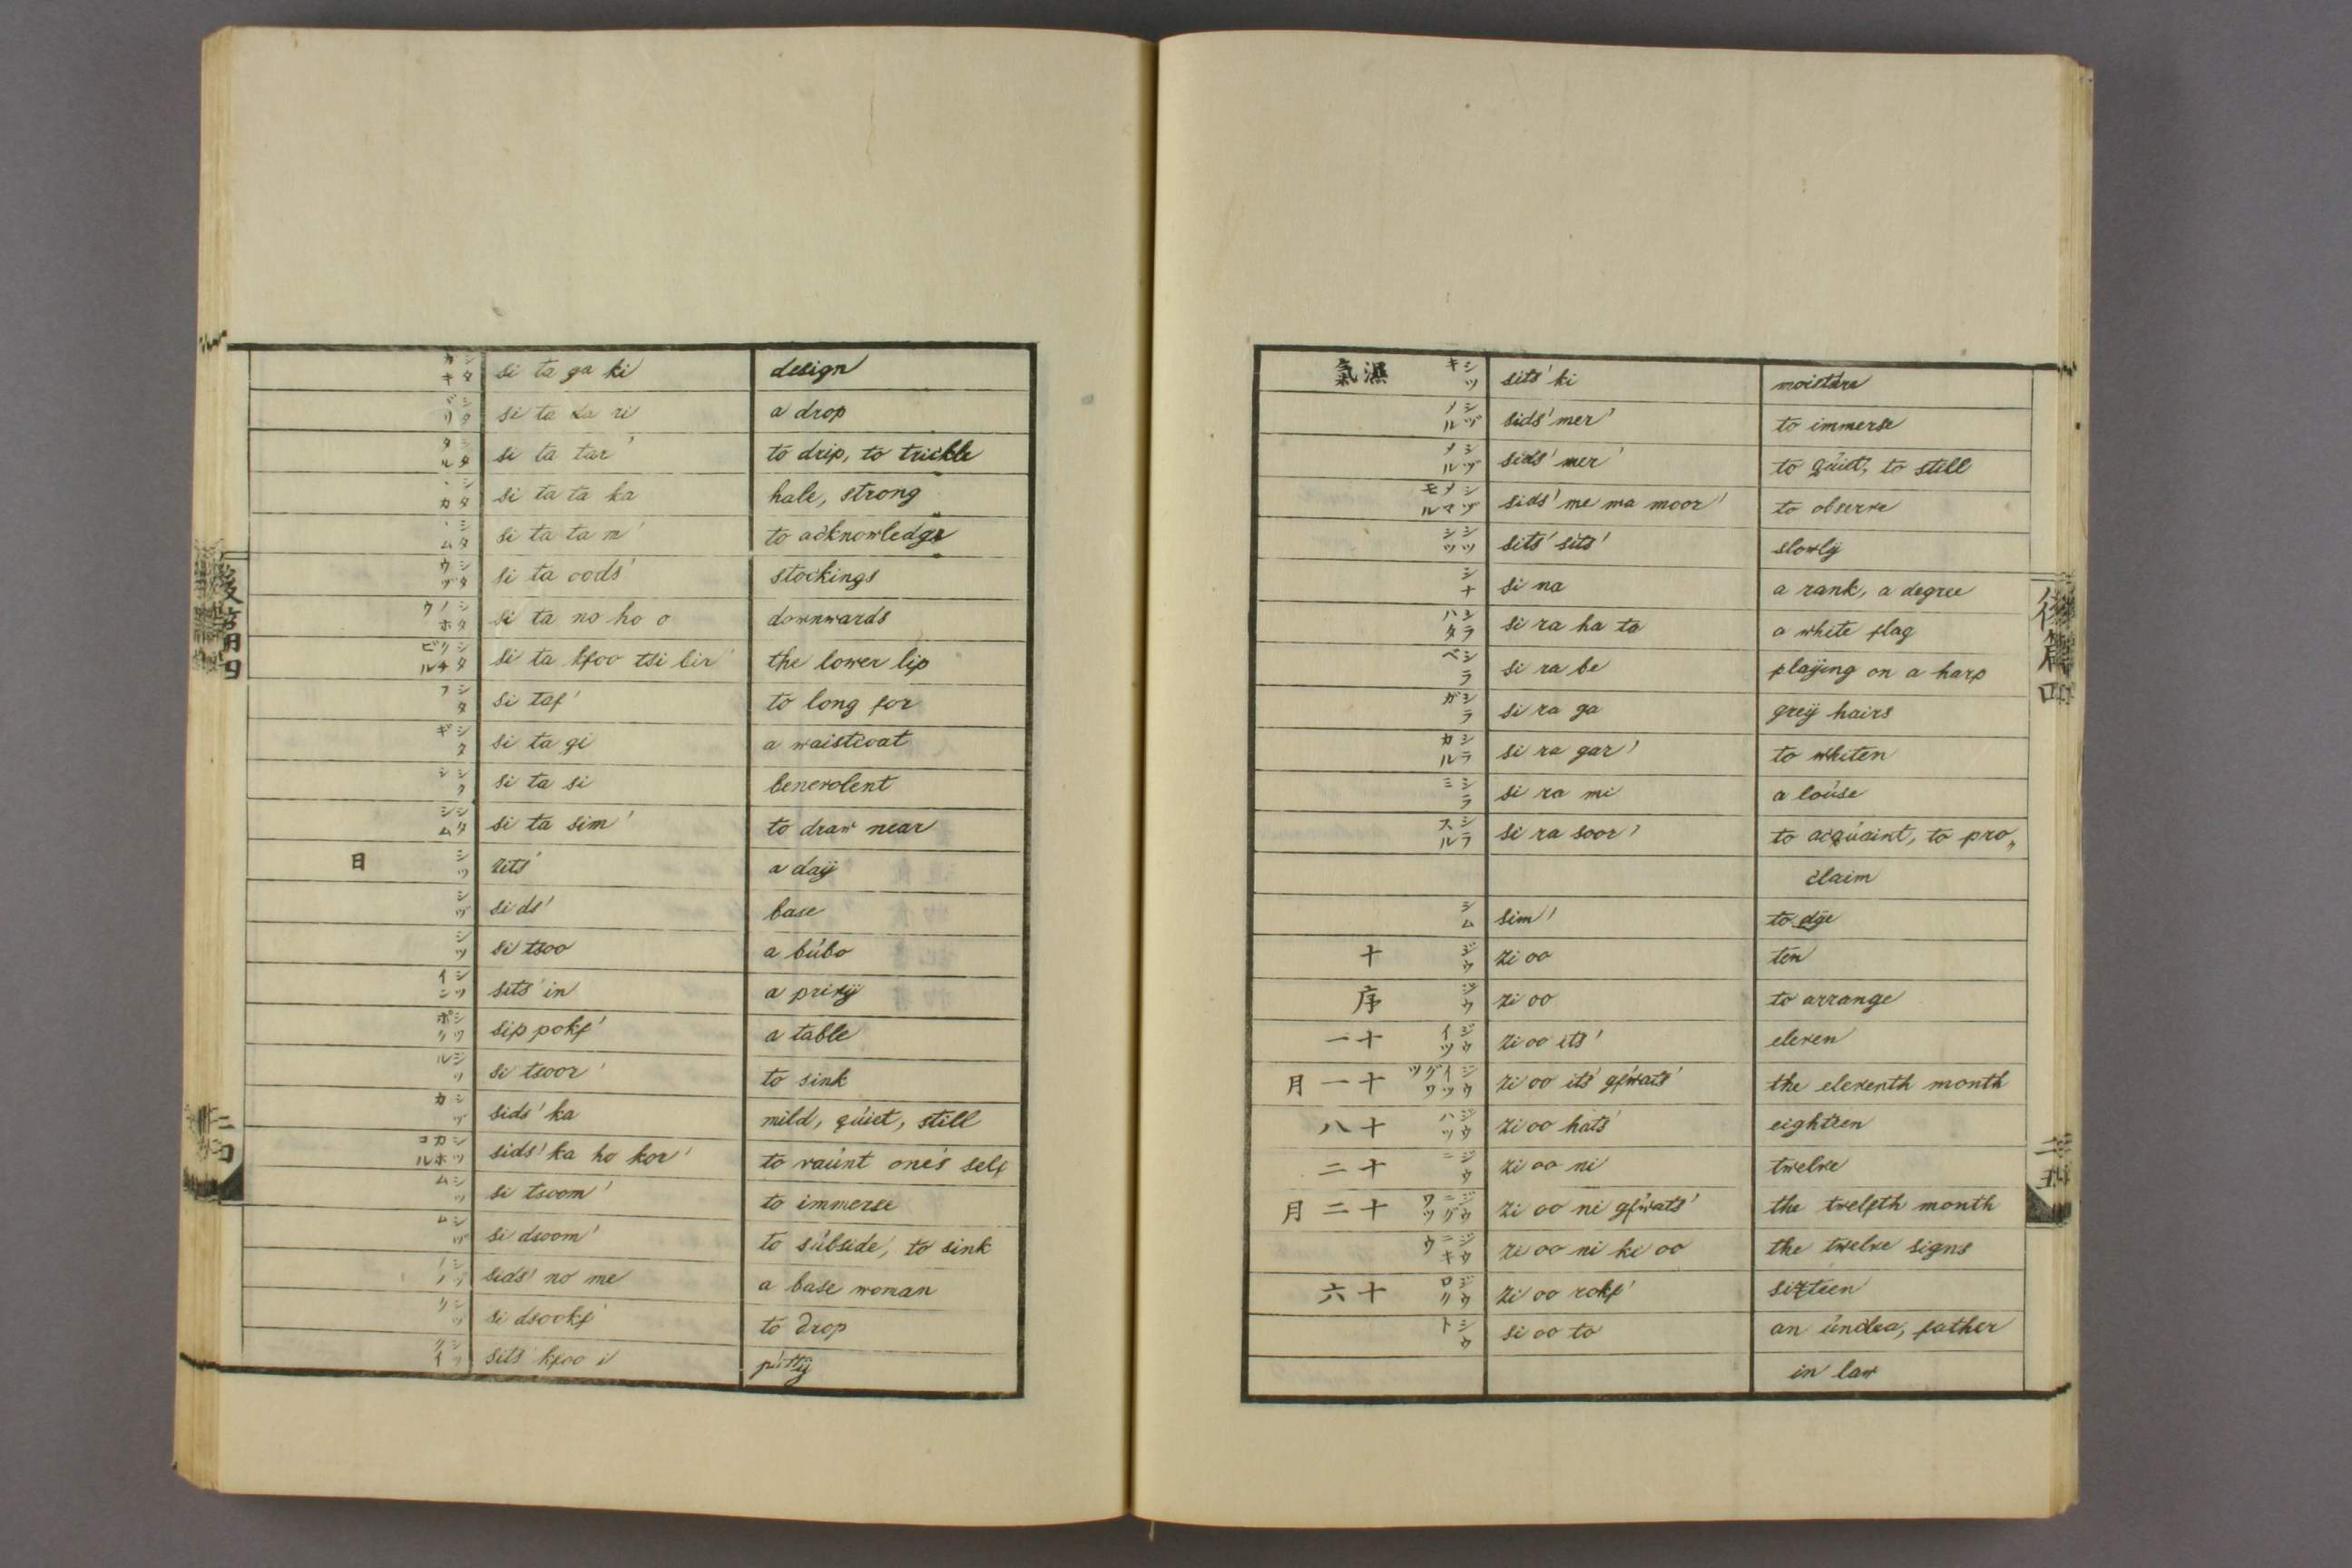 シタカキ si ta ga ki design
シタヾリ si ta da ri a drop
シタタル si ta tar' to drip, to trickle
シタヽカ si ta ta ka hale, strong
シタヽム si ta ta m' to acknowledge
シタウヅ si ta oods' stockings
シタノホウ si ta no ho o downwards
シタクチビル si ta kfoo tsi bir' the lower lip
シタフ si taf' to long for
シタギ si ta gi a waistcoat
シタシ si ta si benevolent
シタシム si ta sim' to draw near
日 シツ zits' a daÿ
シヅ sids' base
シツ si tsoo a búbo
シツイン sits' in a privÿ
シツポク sip pokf' a table
シツル si tsoor' to sink
シヅカ sids' ka mild, qúiet, still
シツカホコル sids' ka ho kor' to vaúnt one's self
シツム si tsoom' to immerse
シヅム si dsoom' to súbside, to sink
sids' no me a base woman
si dsookf' to drop
シツクイ sits' kfoo i púttÿ
濕氣 シツキ sits' ki moistúre
シヅメル sids' mer' to immerse
シヅメル sids' mer' to qúiet, to still
シヅメマモル sids' me ma moor' to observe
シツシツ sits' sits' slowlÿ
シナ si na a rank, a degree
シラハタ si ra ha ta a white flag
シラベ si ra be plaÿing on a harp
シラガ si ra ga greÿ hairs
シラカル si ra gar' to whiten
シラミ si ra mi a loúse
シラスル si ra soor' to acqúaint, to pro„
claim
シム sim' to dÿe
十 ジウ zi oo ten
序 ジウ zi oo to arrange
十一 ジウイツ zi oo its' eleven
十一月 ジウイツグワツ zi oo its' gfwats' the eleventh month
十八 ジウハツ zi oo hats' eighteen
十二 ジウニ zi oo ni twelve
十二月 ジウニグワツ zi oo ni gfwats' the twelfth month
ジウニキウ zi oo ni ki oo the twelve signs
十六 ジウロク zi oo rokf' sixteen
シウト si oo to father
in law